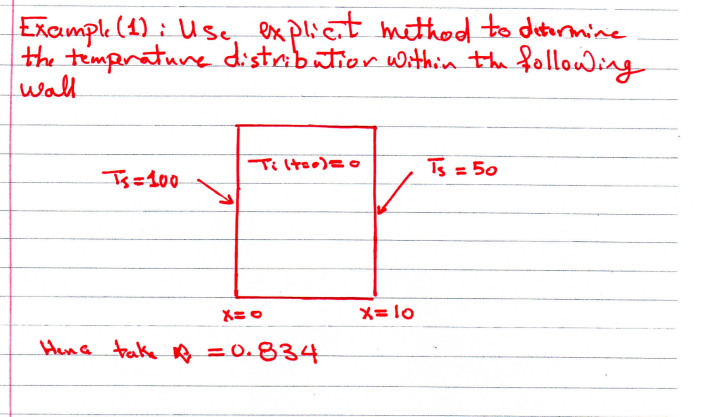 Example (1) : Use explicit method to determine
the temperature distribution within the following
wall
Ts = 100
Ti (t=0) = 0
Ts = 50
x = 0
x = 10
take = 0.834